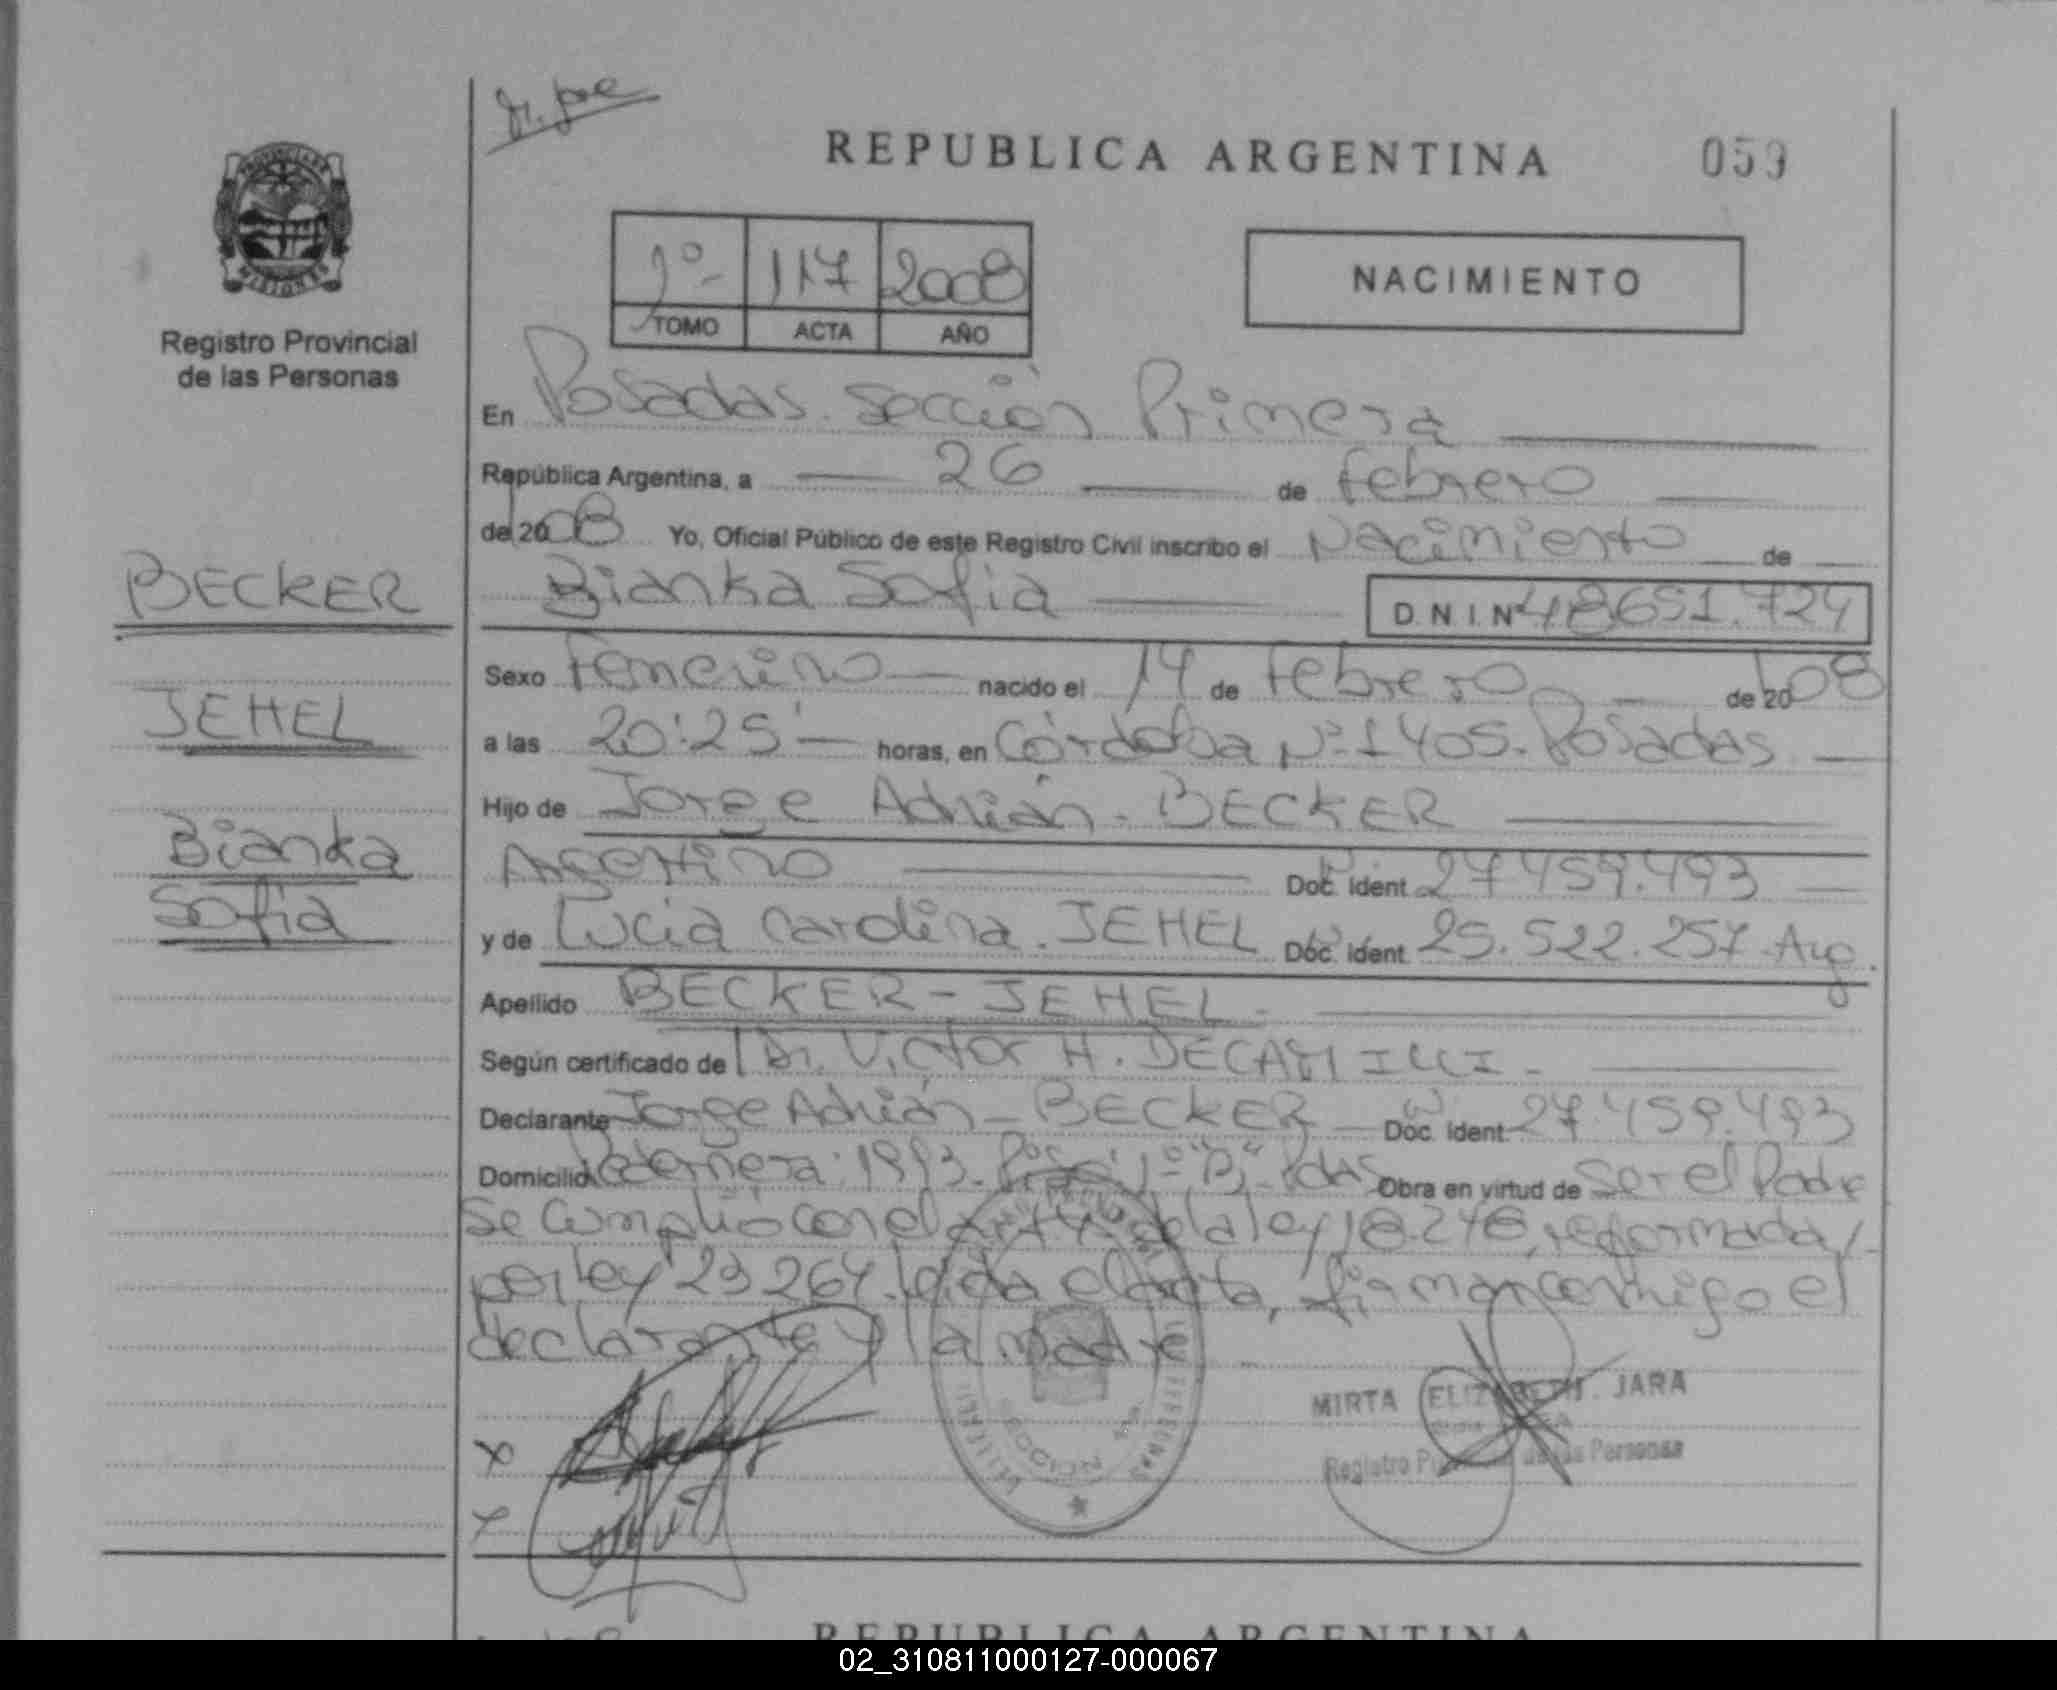 REPUBLICA ARGENTINA 059
PROVINCIA DE MISIONES
Registro Provincial
de las Personas
1º- 117 2008
TOMO ACTA AÑO
NACIMIENTO
En Posadas. Sección Primera
República Argentina, a 26 de febrero
de 2008 Yo, Oficial Público de este Registro Civil inscribo el Nacimiento de
Bianka Sofia D.N.I. Nº 48651.724
BECKER
JEHEL
Bianka
Sofia
Sexo Femenino nacido el 14 de febrero de 2008
a las 20:25 horas, en Córdoba Nº 1405. Posadas
Hijo de Jorge Adrián. BECKER
Argentino Doc. Ident. 27.459.493
y de Lucia Carolina. JEHEL Doc. Ident. 25.522.257. Arg.
Apellido BECKER-JEHEL.
Según certificado de Dr. Victor H. DECAMILLI.
Declarante Jorge Adrián - BECKER Doc. Ident. 27.459.493
Domicilio Pedernera 1993. 1º "B". Pdas Obra en virtud de Ser el Padre
Se Cumplió con el art 4º de la ley 18.248, reformada
por ley 23264. leida el acta, firman conmigo el
declarante y la madre
MIRTA ELIZABETH. JARA
Registro Provincial de las Personas
REPUBLICA ARGENTINA
02_310811000127-000067